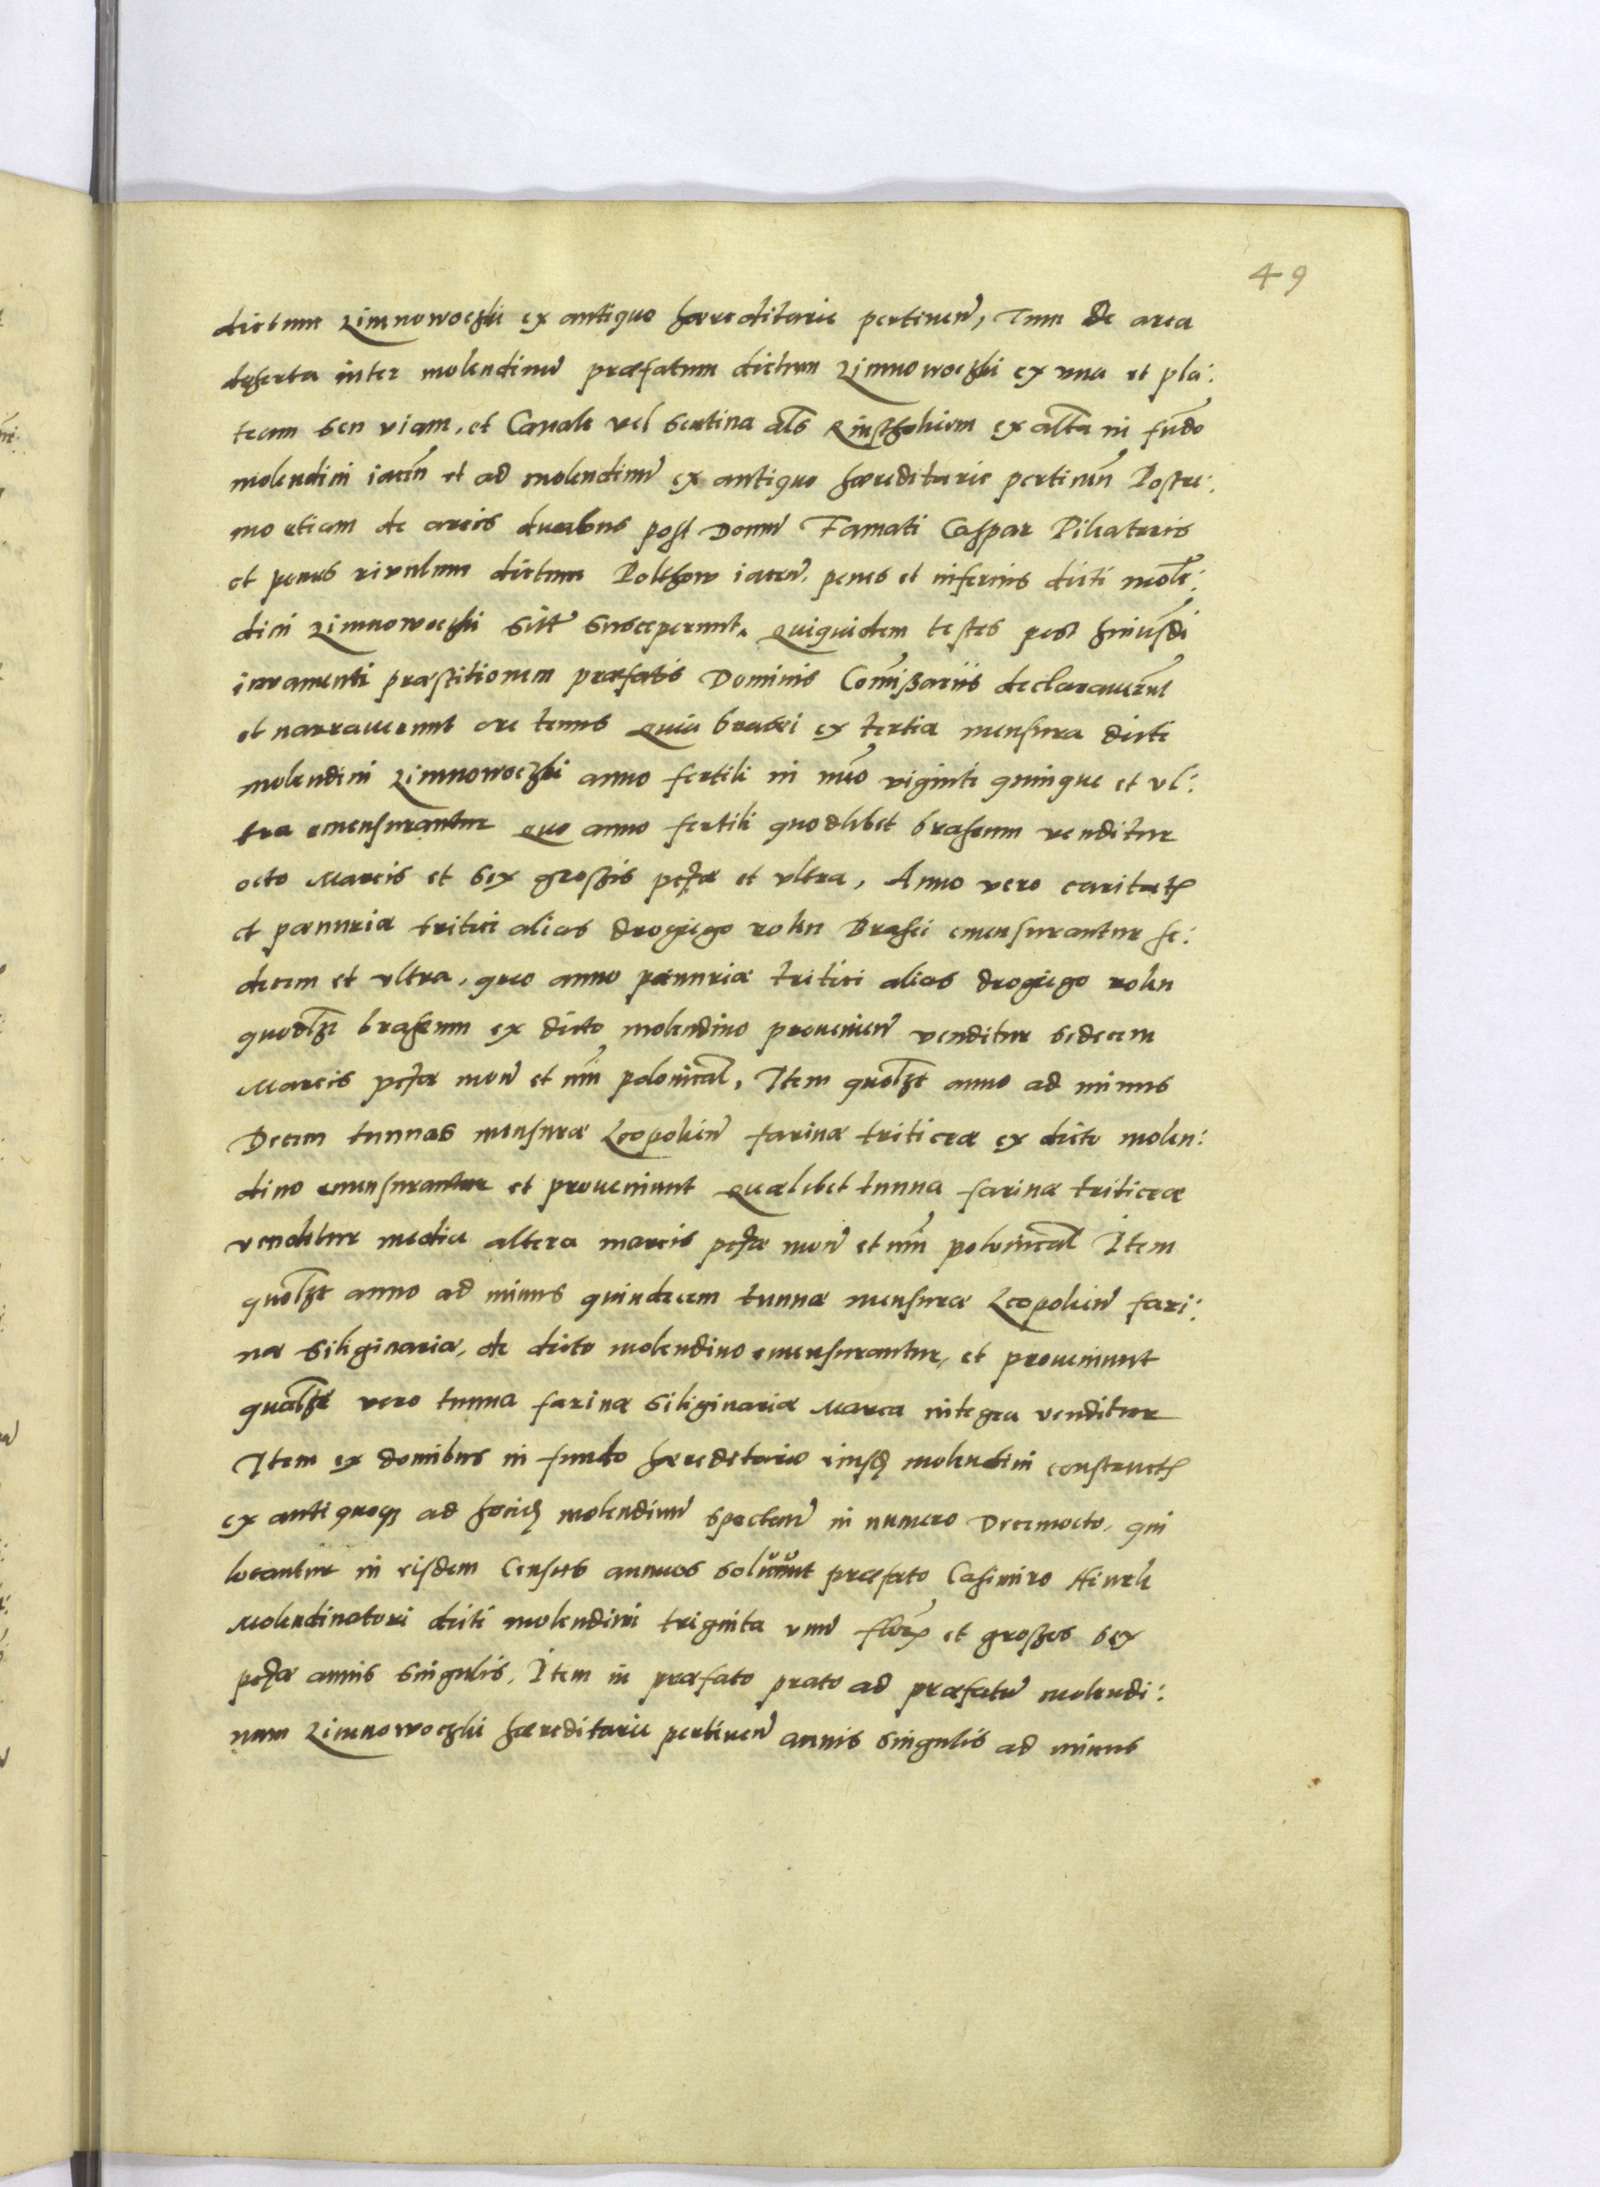 49
dictum Zimnowoczki ex antiquo hæreditarie pertinen̄, Tum de area
deserta inter molendinū præfatum dictum Zimnowoczki ex una et pla:
team seu viam, et Canale vel sentina als Rinsthokiem ex alta in fundo
molendini iacen̄ et ad molendinū ex antiquo hæreditarie pertinen̄ Postre:
mo etiam de areis duabus post Domū Famati Caspar Pileatoris
et penes rivulum dictum Polthow iacen̄, penes et inferius dicti molē:
dini Zimnowoczki sitt susceperunt. Quiquidem testes post huiusdi
iuramenti præstitionem præfatis Dominis Com̄issariis declaraverunt
et narraverunt ore tenus Quia brasei ex tertia mensura dicti
molendini Zimnowoczki anno fertili in nu͞o viginti quinque et ul:
tra emensurantur Quo anno fertili quodlibet braseum venditur
octo Marcis et sex grossis pecuniæ et ultra, Anno vero caritatis
et pænuriæ tritici alias drogiego roku Brasei emensurantur se:
decem et ultra, quo anno pænuriæ tritici alias drogiego roku
quodlzt braseum ex dicto molendino provenien̄ venditur sedecem
Marcis pecuniæ mon̄ et num̄ polonical, Item quolzt anno ad minus
Decem tunnas mensuræ Leopolien̄ farinæ triticeæ ex dicto molen:
dino emensurantur et proveniunt Quælibet tunna farinæ triticeæ
venditur media altera marcis pecuniæ mon̄ et num̄ polonical Item
quolzt anno ad minus quindecem tunnæ mensuræ Leopolien̄ fari:
næ siliginariæ, de dicto molendino emensurantur, et proveniunt
qualzt vero tunna farinæ siliginariæ Marca integra venditur
Item ex domibus in fundo hæreditario eiusdē molendini constructis
ex antiquoq̨ ad hociedē molendinū spectan̄ in numero Decemocto, qui
locantur in eisdem Census annuos solvunt præfato Casimiro Hinek
Molendinatori dicti molendini triginta unū flor et grosses sex
pecuniæ annis singulis. Item in præfato prato ad præfatū molendi:
num Zimnowoczki hæreditarie pertinen̄ annis singulis ad minus